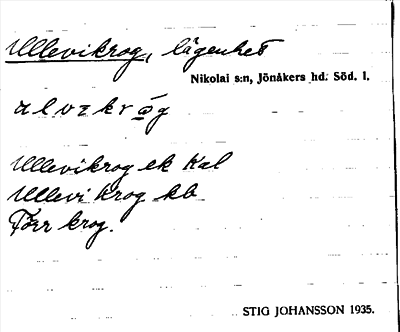 Ullevikrog, lägenhet
Nikolai s:n, Jönåkers hd. Söd. l.
ulvɪkrǻg
Ullevikrog ek Kal
Ullevi krog kb
Förr krog.
STIG JOHANSSON 1935.